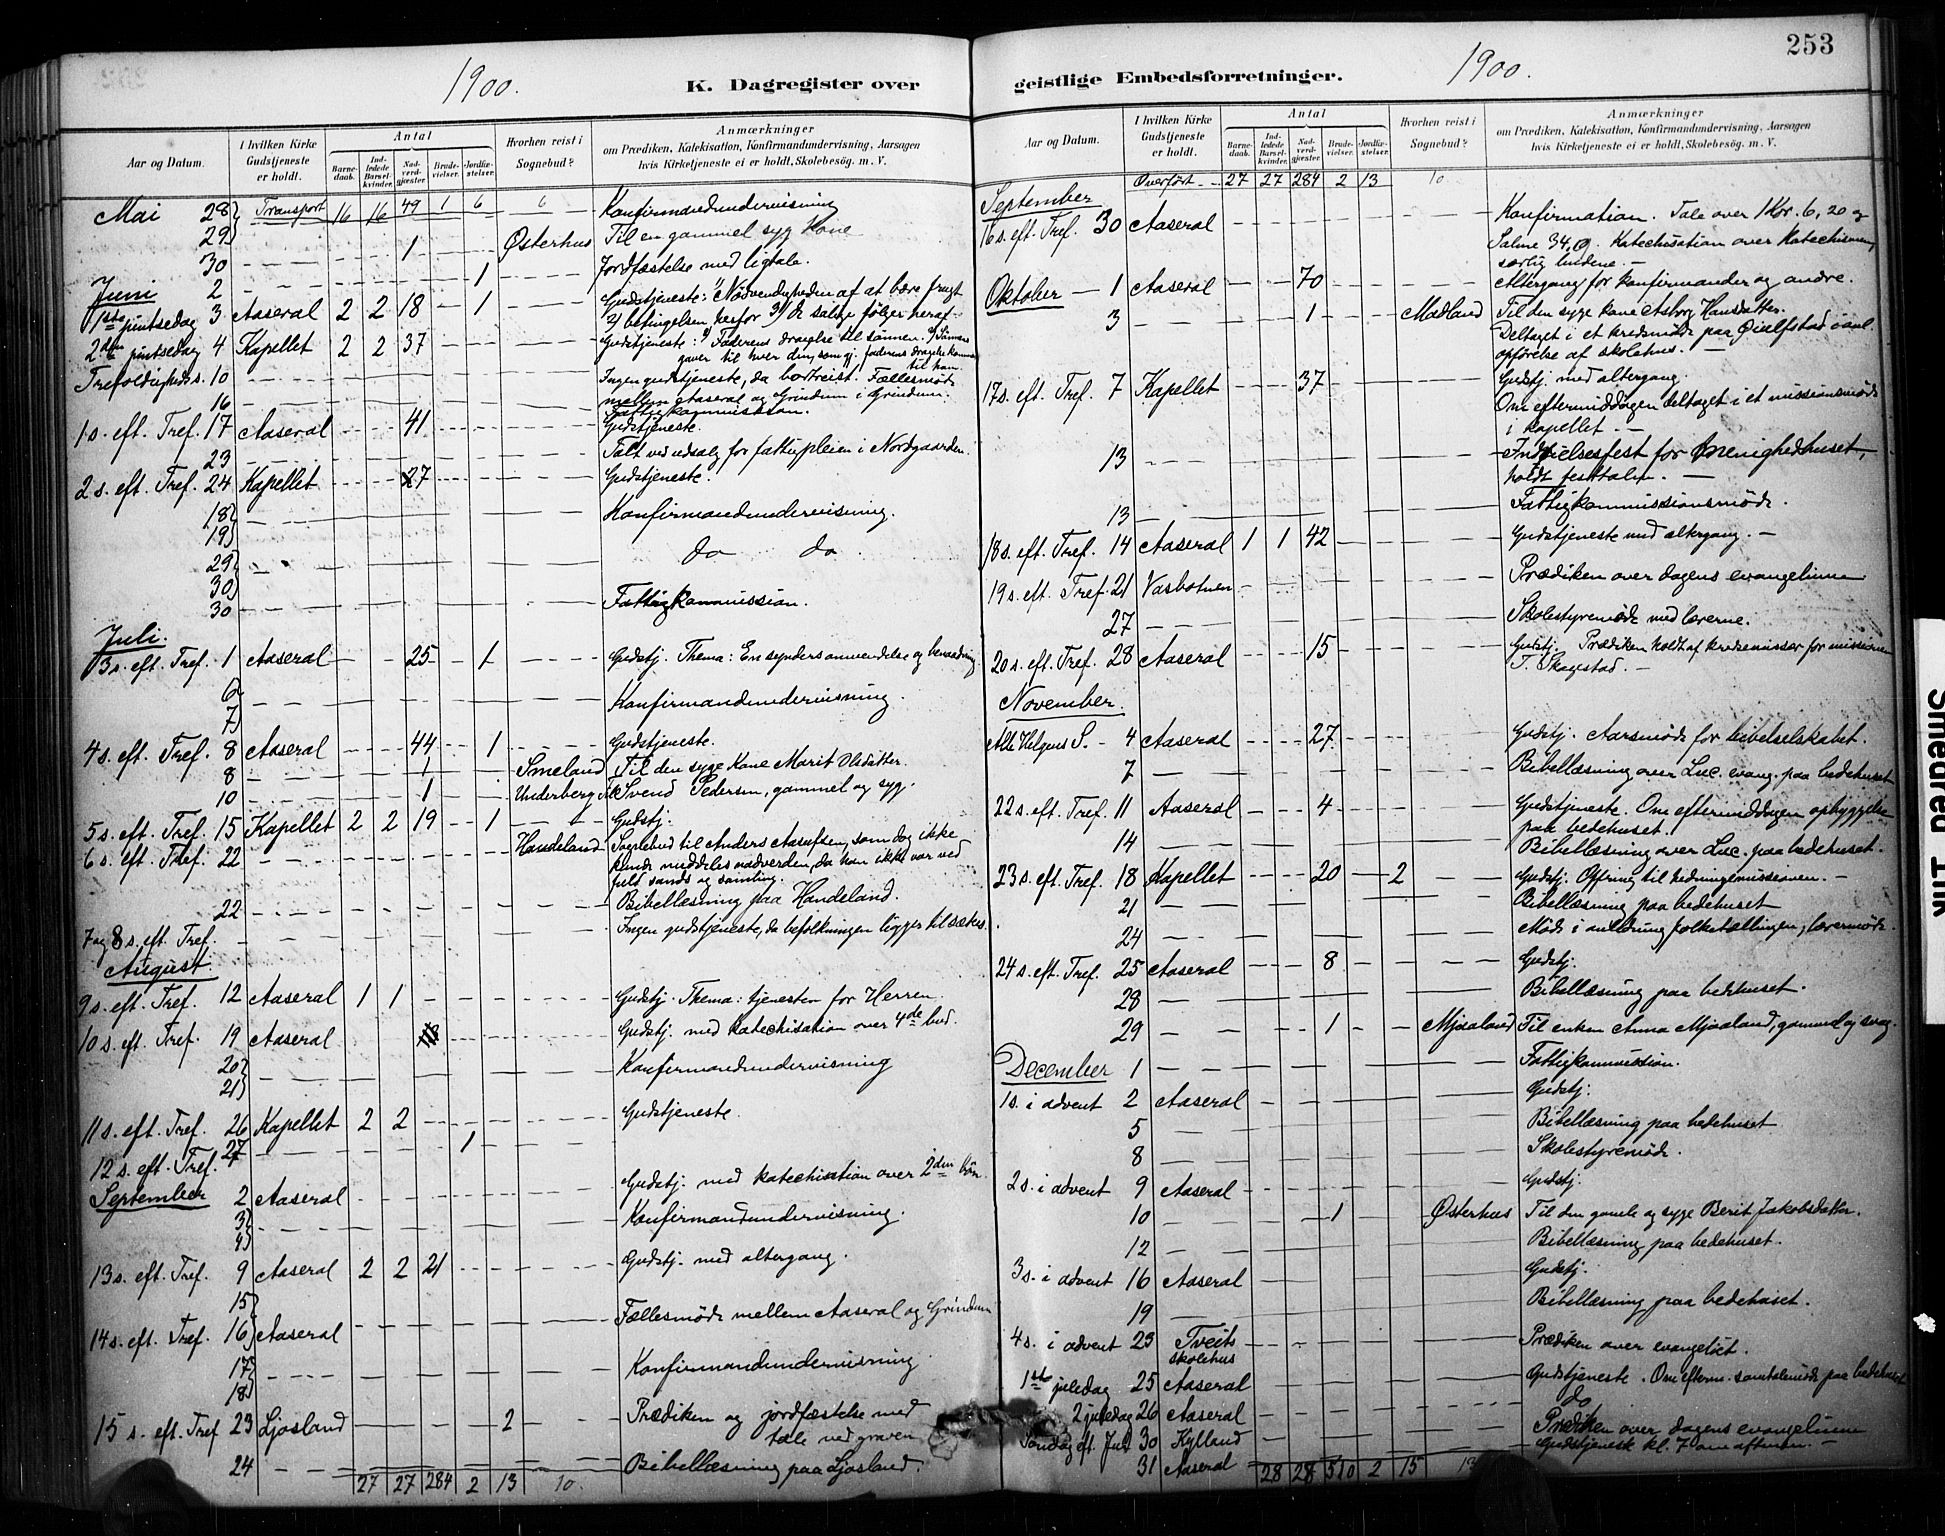 1900.
K. Dagregister over
Aar og Datum.
I hvilken Kirke Gudstjeneste er holdt.
Antal
Barne-daab.
Ind-ledede Barsel-kvinder.
Nad-verd-gjæster.
Brude-vielser.
Jordfæ-stelser.
Hvorhen reist i Sognebud?
Anmærkninger
om Prædiken, Katekisation, Konfirmandundervisning, Aarsagen
hvis Kirketjeneste ei er holdt, Skolebesøg. m. V.
Mai 28 Transport 16 16 49 1 6 6 Konfirmandundervisning
29 1 Østerhus Til en gammel syg Kone
30 1 Jordfæstelse med ligtale.
Juni 2
1ste pintsedag 3 Aaseral 2 2 18 1 Gudstjeneste: 1) Nødvendigheden af at bære frugt
2) betingelsen herfor 3) de salige følger heraf.
2den pintsedag 4 Kapellet 2 2 37 Gudstjeneste: 1) Faderens dragelse til sønnen. 2) Sønnens
gaver til hver den, som gj. faderens dragelse kommer
til ham
Trefoldigheds s. 10 Ingen gudstjeneste, da bortreist. Fællesmøde
mellem Aaseral og Grindum i Grindum.
16 Fattigkommission.
1 s. eft. Tref. 17 Aaseral 41 Gudstjeneste.
23 Talt ved udsalg for fattigpleien i Nordgaarden.
2 s. eft. Tref. 24 Kapellet 27 Gudstjeneste.
18 Konfirmandundervisning.
19
29 do do
30
30 Fattigkommission.
Juli.
3 s. eft. Tref. 1 Aaseral 25 1 Gudstj. Thema: En synders omvendelse og benaadning
6 Konfirmandundervisning.
7
4 s. eft. Tref. 8 Aaseral 44 1 Gudstjeneste.
8 1 Smeland Til den syge Kone Marit Olsdatter.
10 1 Underberg Til Svend Pedersen, gammel og syg.
5 s. eft. Tref. 15 Kapellet 2 2 19 1 Gudstj.
6 s. eft. Tref. 22 Handeland Sognebud til Anders Aasulfsen, som dog ikke
kunde meddeles nadverden, da han ikke var ved
fuld sands og samling.
22 Bibellæsning paa Handeland.
7 og 8 s. eft. Tref. Ingen gudstjeneste, da befolkningen ligger til sæters.
August
9 s. eft. Tref. 12 Aaseral 1 1 Gudstj. Thema: tjenesten for Herren.
10 s. eft. Tref. 19 Aaseral Gudstj. med katechisation over 4de bud.
20 Konfirmandundervisning
21
11 s. eft. Tref. 26 Kapellet 2 2 Gudstjeneste.
27 1
12 s. eft. Tref.
September 2 Aaseral Gudstj. med katechisation over 2den bøn.
3 Konfirmandundervisning.
4
13 s. eft. Tref. 9 Aaseral 2 2 21 Gudstj. med altergang.
15 Fællesmøde mellem Aaseral og Grindum
14 s. eft. Tref. 16 Aaseral
17 Konfirmandundervisning.
18
15 s. eft. Tref 23 Ljosland 2 Prædiken og jordfæstelse med
tale ved graven
24 Bibellæsning paa Ljosland.
27 27 284 2 13 10.
253
geistlige Embedsforretninger. 1900.
Aar og Datum.
I hvilken Kirke Gudstjeneste er holdt.
Antal
Barne-daab.
Ind-ledede Barsel-kvinder.
Nad-verd-gjæster.
Brude-vielser.
Jordfæ-stelser.
Hvorhen reist i Sognebud?
Anmærkninger
om Prædiken, Katekisation, Konfirmandundervisning, Aarsagen
hvis Kirketjeneste ei er holdt, Skolebesøg. m. V.
Overført 27 27 284 2 13 10
September
16 s. eft. Tref. 30 Aaseral Konfirmation. Tale over 1 Kor. 6, 20 og
Salme 34, 9. Katechisation over Katechismen,
særlig budene.
Oktober 1 Aaseral 70 Altergang for konfirmander og andre.
3 1 Madland Til den syge kone Asborg Hansdatter.
Deltaget i et kredsmøde paa i anl.
opførelse af skolehus.
17 s. eft. Tref. 7 Kapellet 37 Gudstj. med altergang.
Om eftermiddagen deltaget i et missionsmøde
i kapellet.
13 Indvielsesfest for menighedhuset,
holdt festtalen.
13 Fattigkommissionsmøde.
18 s. eft. Tref. 14 Aaseral 1 1 42 Gudstjeneste med altergang.
19 s. eft. Tref. 21 Vasbotnen Prædiken over dagens evangelium
27 Skolestyremøde med lærerne.
20 s. eft. Tref. 28 Aaseral 15 Gudstj. Prædiken holdt af kredsemissær for missionen
T. Skagestad.
November.
Alle Helgens S. 4 Aaseral 27 Gudstj. Aarsmøde for bibelselskabet.
7 Bibellæsning over Luc. evang. paa bedehuset
22 s. eft. Tref. 11 Aaseral 4 Gudstjeneste. Om eftermiddagen opbyggelse
paa bedehuset.
14 Bibellæsning over Luc. paa bedehuset.
23 s. eft. Tref. 18 Kapellet 20 2 Gudstj. Offring til hedningemissionen.
21 Bibellæsning paa bedehuset
24 Møde i anledning folketællingen, lærermøde.
24 s. eft. Tref. 25 Aaseral 8 Gudstj.
28 Bibellæsning paa bedehuset.
29 1 Mjaaland Til enken Anna Mjaaland, gammel og svag.
December 1 Fattigkommission.
1 s. i advent 2 Aaseral Gudstj.
5 Bibellæsning paa bedehuset
8 Skolestyremøde.
2 s. i advent 9 Aaseral Gudstj.
10 1 Østerhus Til den gamle og syge Berit Jakobsdatter.
12 Bibellæsning paa bedehuset.
3 s. i advent 16 Aaseral Gudstj.
19 Bibellæsning paa bedehuset.
4 s. i advent 23 Tveits
skolehus Prædiken over evangeliet.
1ste juledag 25 Aaseral Gudstjeneste. Om efterm. samtalemøde paa bedehuset
2 juledag 26 Aaseral do
Søndag eft. Jul 30 Kylland Prædiken over dagens evangelium
31 Aaseral Gudstjeneste kl. 7 om aftenen.
28 28 510 2 15 13
Smeared Ink